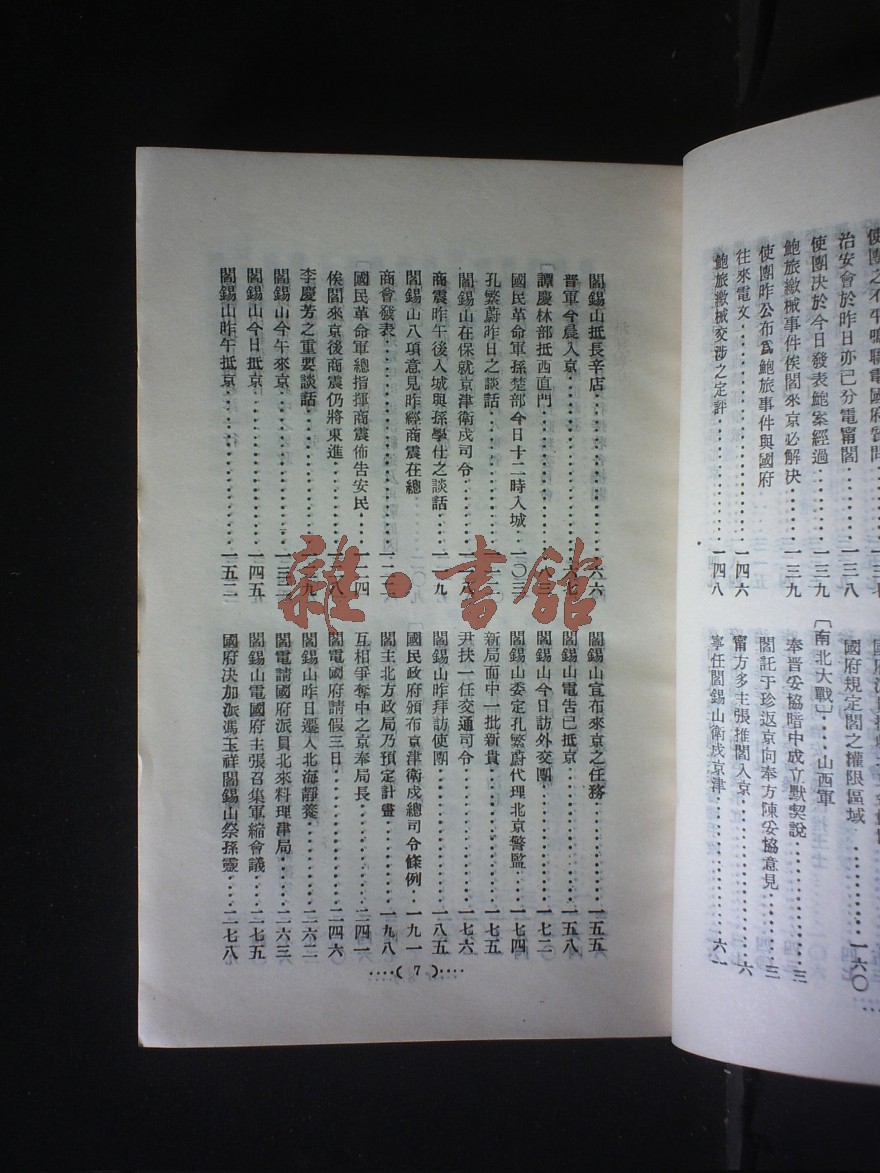 治安會於昨日亦已分電甯閻‥‥一三八
使團決於今日發表鮑案經過‥‥一三九
鮑旅繳械事件俟閻來京必解決‥一三九
使團昨公布爲鮑旅事件與國府
往來電文‥‥‥‥一四六
鮑旅繳械交涉之定評‥‥‥‥一四八
國府規定閻之權限區域‥‥一六〇
〔南北大戰〕‥‥山西軍
奉晋妥協暗中成立默契說‥‥三
閻託于珍返京向奉方陳妥協意見‥三
甯方多主張推閻入京‥‥‥六
寧任閻錫山衛戍京津‥‥‥六一
閻錫山抵長辛店‥‥‥‥六六
晋軍今晨入京‥‥‥‥六七
譚慶林部抵西直門‥‥‥‥八三
國民革命軍孫楚部今日十二時入城‥一〇三
孔繁蔚昨日之談話‥‥‥‥
閻錫山在保就京津衛戍司令‥‥一一八
商震昨午後入城與孫學仕之談話‥一一九
閻錫山八項意見昨經商震在總
商會發表‥‥‥‥
國民革命軍總指揮商震佈告安民‥一二四
俟閻來京後商震仍將東進‥‥一二八
李慶芳之重要談話‥‥‥‥
閻錫山今午來京‥‥‥‥
閻錫山今日抵京‥‥‥‥一四五
閻錫山昨午抵京‥‥‥‥一五二
閻錫山宣布來京之任務‥‥一五五
閻錫山電告已抵京‥‥‥‥一五八
閻錫山今日訪外交團‥‥‥一七二
閻錫山委定孔繁蔚代理北京警監‥一七四
新局面中一批新貴‥‥‥‥一七五
尹扶一任交通司令‥‥‥‥一七六
閻錫山昨拜訪使團‥‥‥‥一八五
國民政府頒布京津衛戍總司令條例‥一九一
閻主北方政局乃預定計畫‥‥一九八
互相爭奪中之京奉局長‥‥‥二四一
閻電國府請假三日‥‥‥‥二四六
閻錫山昨日遷入北海靜養‥‥二六二
閻電請國府派員北來料理津局‥‥二六三
閻錫山電國府主張召集軍縮會議‥二七五
國府决加派馮玉祥閻錫山祭孫靈‥二七八
‥‥(7)‥‥
雜·書館